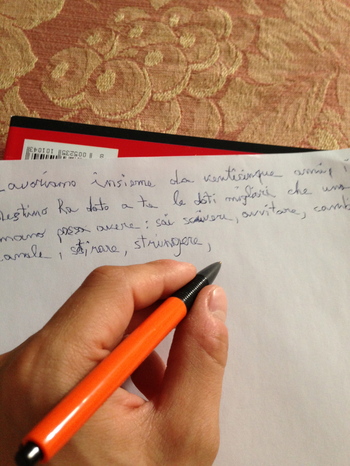 8 005258 101043
Lavoriamo insieme da venticinque anni,
destino ha dato a te le doti migliori che una
mano possa avere: sai scrivere, avvitare, camb
canale, stirare, stringere,